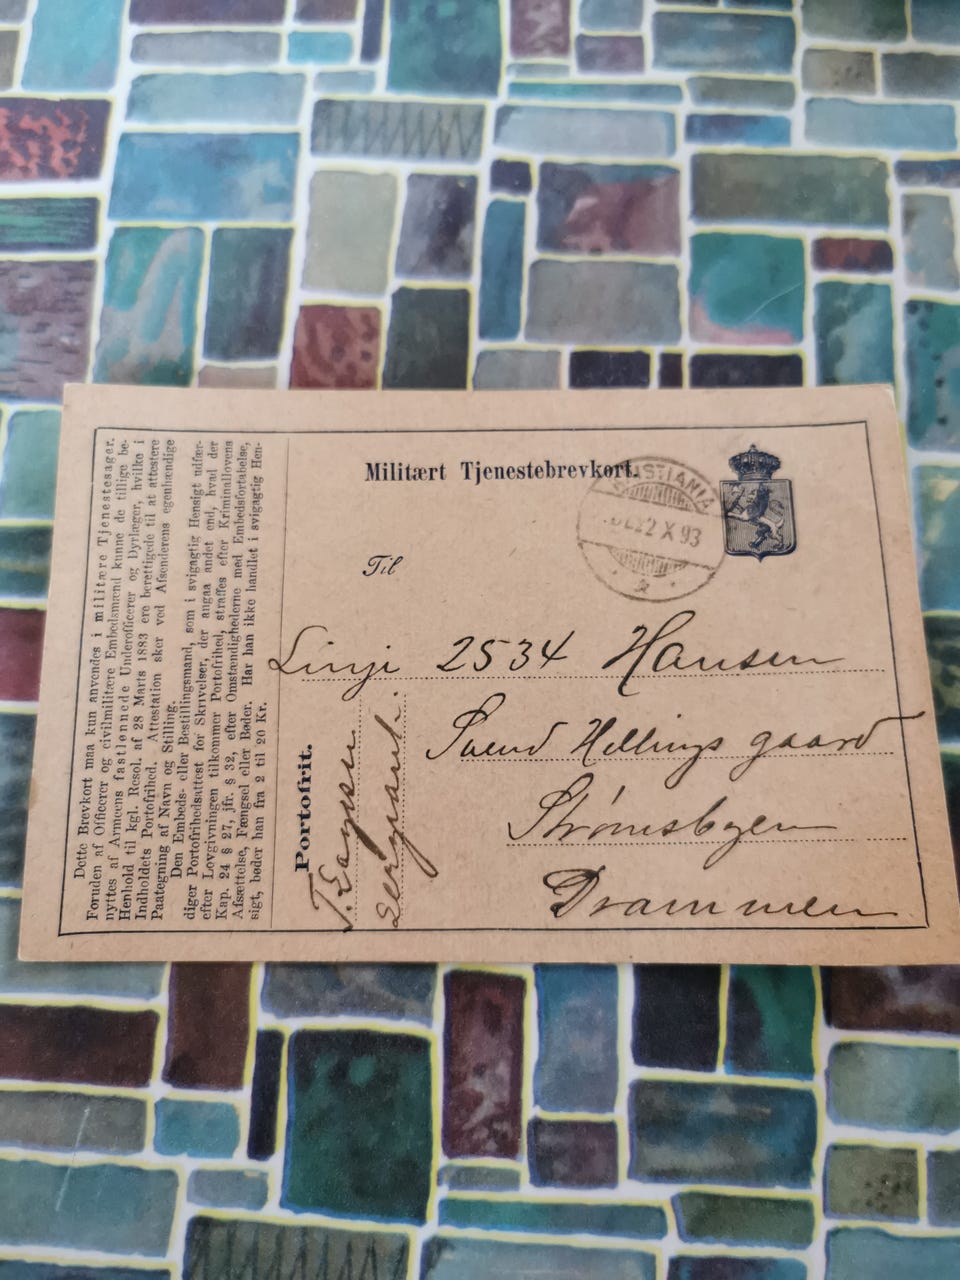 Militært Tjenestebrevkort.
CHRISTIANIA
22 X 93
Til
Linje 2534 Hansen
Svend Hellings gaard
Strømsbyen
Drammen
Portofrit.
Sergeant.
Dette Brevkort maa kun anvendes i militære Tjenestesager.
Foruden af Officerer og civilmilitære Embedsmænd kunne de tillige be-
nyttes af Armeens fastlønnede Underofficerer og Dyrlæger, hvilke i
Henhold til kgl. Resol. af 28 Marts 1883 ere berettigede til at attestere
Indholdets Portofrihed. Attestation sker ved Afsenderens egenhændige
Paategning af Navn og Stilling.
Den Embeds- eller Bestillingsmand, som i svigagtig Hensigt udfær-
diger Portofrihedsattest for Skrivelser, der angaa andet end, hvad der
efter Lovgivningen tilkommer Portofrihed, straffes efter Kriminallovens
Kap. 24 § 27, jfr. § 32, efter Omstændighederne med Embedsfortabelse,
Afsættelse, Fængsel eller Bøder. Har han ikke handlet i svigagtig Hen-
sigt, bøder han fra 2 til 20 Kr.